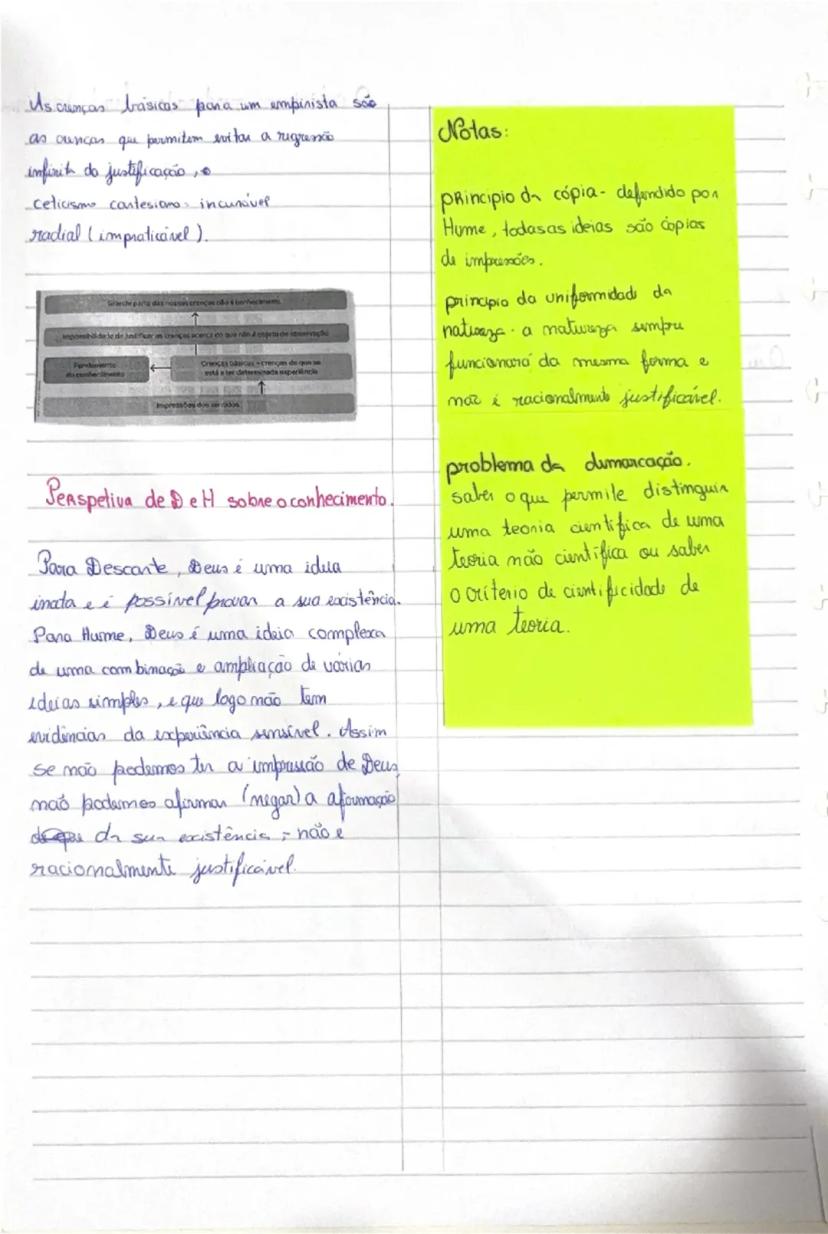 As crenças básicas para um empirista são
as crenças que permitem evitar a regressão
infinita da justificação, o
ceticismo cartesiano. incurável
radial (impraticável).
Grande parte das nossas crenças não é conhecimento.
Impossibilidade de justificar as crenças acerca do que não é objeto de observação
Fundamento
do conhecimento
Crenças básicas - crenças de que se
está a ter determinada experiência
Impressões dos sentidos
Perspetiva de D e H sobre o conhecimento.
Para Descarte, Deus é uma ideia
inata e é possível provar a sua existência.
Para Hume, Deus é uma ideia complexa
de uma combinação e ampliação de várias
ideias simples, e que logo não tem
evidências da experiência sensível. Assim
se não podemos ter a impressão de Deus,
não podemos afirmar (negar) a afirmação
da sua existência, não é
racionalmente justificável.
Notas:
principio da cópia - defendido por
Hume, todas as ideias são cópias
de impressões.
principio da uniformidade da
natureza. a natureza sempre
funcionará da mesma forma e
não é racionalmente justificável.
problema da demarcação.
saber o que permite distinguir
uma teoria científica de uma
teoria não científica ou saber
o critério de cientificidade de
uma teoria.